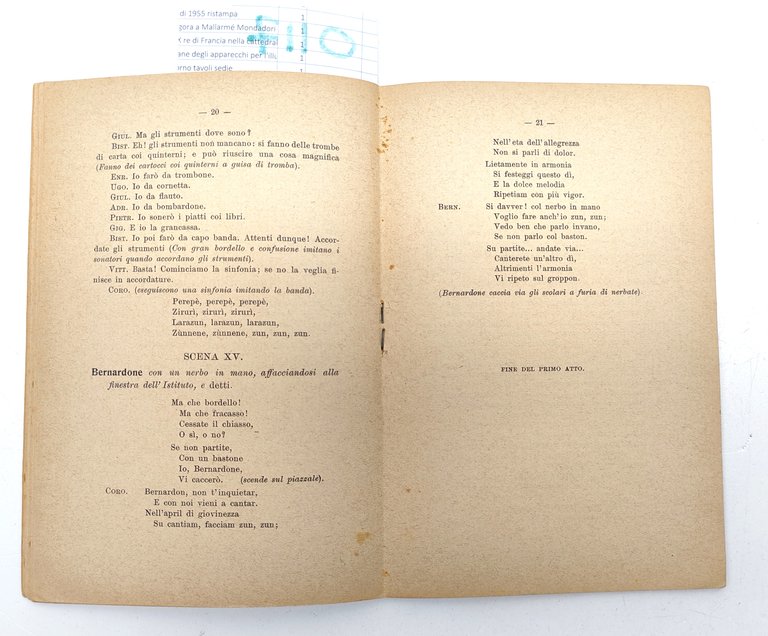 di 1955 ristampa 1
gora a Mallarmé Mondadori 1
re di Francia nella cattedral 1
ane degli apparecchi per l'illu 1
rno tavoli sedie 1
— 20 —
GIUL. Ma gli strumenti dove sono?
BIST. Eh! gli strumenti non mancano: si fanno delle trombe
di carta coi quinterni; e può riuscire una cosa magnifica
(Fanno dei cartocci coi quinterni a guisa di tromba).
ENR. Io farò da trombone.
UGO. Io da cornetta.
GIUL. Io da flauto.
ADR. Io da bombardone.
PIETR. Io sonerò i piatti coi libri.
GIG. E io la grancassa.
BIST. Io poi farò da capo banda. Attenti dunque! Accor-
date gli strumenti (Con gran bordello e confusione imitano i
sonatori quando accordano gli strumenti).
VITT. Basta! Cominciamo la sinfonia; se no la veglia fi-
nisce in accordature.
CORO. (eseguiscono una sinfonia imitando la banda).
Perepè, perepè, perepè,
Zirurì, zirurì, zirurì,
Larazun, larazun, larazun,
Zùnnene, zùnnene, zun, zun, zun.
SCENA XV.
Bernardone con un nerbo in mano, affacciandosi alla
finestra dell'Istituto, e detti.
Ma che bordello!
Ma che fracasso!
Cessate il chiasso,
O sì, o no?
Se non partite,
Con un bastone
Io, Bernardone,
Vi caccerò. (scende sul piazzale).
CORO. Bernardon, non t'inquietar,
E con noi vieni a cantar.
Nell'april di giovinezza
Su cantiam, facciam zun, zun;
— 21 —
Nell'eta dell'allegrezza
Non si parli di dolor.
Lietamente in armonia
Si festeggi questo dì,
E la dolce melodia
Ripetiam con più vigor.
BERN. Si davver! col nerbo in mano
Voglio fare anch'io zun, zun;
Vedo ben che parlo invano,
Se non parlo col baston.
Su partite... andate via...
Canterete un'altro dì,
Altrimenti l'armonia
Vi ripeto sul groppon.
(Bernardone caccia via gli scolari a furia di nerbate).
FINE DEL PRIMO ATTO.